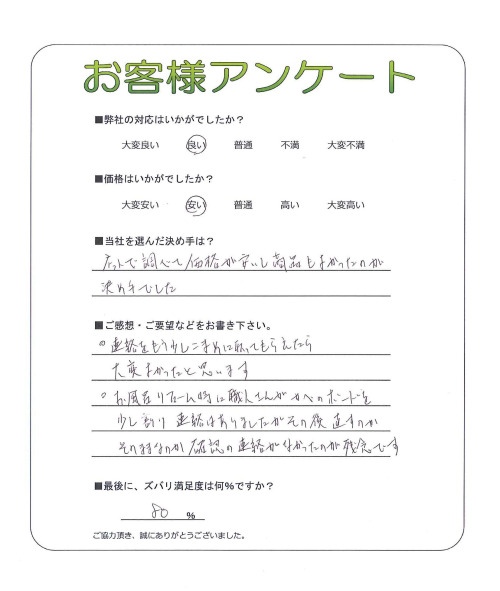 お客様アンケート
■弊社の対応はいかがでしたか？
大変良い 良い 普通 不満 大変不満
■価格はいかがでしたか？
大変安い 安い 普通 高い 大変高い
■当社を選んだ決め手は？
ネットで調べて価格が安いし商品もよかったのが
決め手でした
■ご感想・ご要望などをお書き下さい。
○連絡をもう少しこまめに取ってもらえたら
大変よかったと思います
○お風呂リフォーム時に職人さんがカベのボードを
少し割り連絡はありましたがその後直すのか
そのままなのか確認の連絡がなかったのが残念です
■最後に、ズバリ満足度は何％ですか？
80 ％
ご協力頂き、誠にありがとうございました。